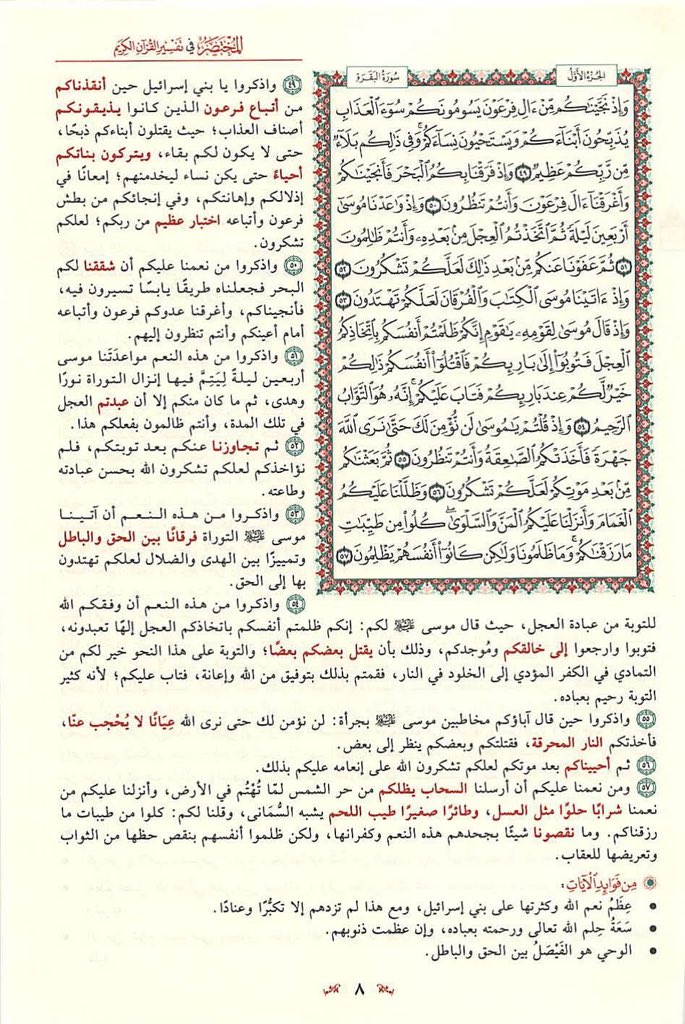 المختصر في تفسير القرآن الكريم
الجزء الأول
سورة البقرة
وَإِذْ نَجَّيْنَٰكُم مِّنْ ءَالِ فِرْعَوْنَ يَسُومُونَكُمْ سُوٓءَ ٱلْعَذَابِ
يُذَبِّحُونَ أَبْنَآءَكُمْ وَيَسْتَحْيُونَ نِسَآءَكُمْ وَفِي ذَٰلِكُم بَلَآءٌ
مِّن رَّبِّكُمْ عَظِيمٌ ٤٩ وَإِذْ فَرَقْنَا بِكُمُ ٱلْبَحْرَ فَأَنجَيْنَٰكُمْ
وَأَغْرَقْنَآ ءَالَ فِرْعَوْنَ وَأَنتُمْ تَنظُرُونَ ٥٠ وَإِذْ وَٰعَدْنَا مُوسَىٰٓ
أَرْبَعِينَ لَيْلَةً ثُمَّ ٱتَّخَذْتُمُ ٱلْعِجْلَ مِنۢ بَعْدِهِۦ وَأَنتُمْ ظَٰلِمُونَ
٥١ ثُمَّ عَفَوْنَا عَنكُم مِّنۢ بَعْدِ ذَٰلِكَ لَعَلَّكُمْ تَشْكُرُونَ ٥٢
وَإِذْ ءَاتَيْنَا مُوسَى ٱلْكِتَٰبَ وَٱلْفُرْقَانَ لَعَلَّكُمْ تَهْتَدُونَ ٥٣
وَإِذْ قَالَ مُوسَىٰ لِقَوْمِهِۦ يَٰقَوْمِ إِنَّكُمْ ظَلَمْتُمْ أَنفُسَكُم بِٱتِّخَاذِكُمُ
ٱلْعِجْلَ فَتُوبُوٓا۟ إِلَىٰ بَارِئِكُمْ فَٱقْتُلُوٓا۟ أَنفُسَكُمْ ذَٰلِكُمْ
خَيْرٌ لَّكُمْ عِندَ بَارِئِكُمْ فَتَابَ عَلَيْكُمْ إِنَّهُۥ هُوَ ٱلتَّوَّابُ
ٱلرَّحِيمُ ٥٤ وَإِذْ قُلْتُمْ يَٰمُوسَىٰ لَن نُّؤْمِنَ لَكَ حَتَّىٰ نَرَى ٱللَّهَ
جَهْرَةً فَأَخَذَتْكُمُ ٱلصَّٰعِقَةُ وَأَنتُمْ تَنظُرُونَ ٥٥ ثُمَّ بَعَثْنَٰكُم
مِّنۢ بَعْدِ مَوْتِكُمْ لَعَلَّكُمْ تَشْكُرُونَ ٥٦ وَظَلَّلْنَا عَلَيْكُمُ
ٱلْغَمَامَ وَأَنزَلْنَا عَلَيْكُمُ ٱلْمَنَّ وَٱلسَّلْوَىٰ كُلُوا۟ مِن طَيِّبَٰتِ
مَا رَزَقْنَٰكُمْ وَمَا ظَلَمُونَا وَلَٰكِن كَانُوٓا۟ أَنفُسَهُمْ يَظْلِمُونَ ٥٧
٤٩ واذكروا يا بني إسرائيل حين أنقذناكم
من أتباع فرعون الذين كانوا يذيقونكم
أصناف العذاب؛ حيث يقتلون أبناءكم ذبحًا،
حتى لا يكون لكم بقاء، ويتركون بناتكم
أحياءً حتى يكن نساء ليخدمنهم؛ إمعانًا في
إذلالكم وإهانتكم، وفي إنجائكم من بطش
فرعون وأتباعه اختبار عظيم من ربكم؛ لعلكم
تشكرون.
٥٠ واذكروا من نعمنا عليكم أن شققنا لكم
البحر فجعلناه طريقًا يابسًا تسيرون فيه،
فأنجيناكم، وأغرقنا عدوكم فرعون وأتباعه
أمام أعينكم وأنتم تنظرون إليهم.
٥١ واذكروا من هذه النعم مواعدَتَنا موسى
أربعين ليلةً ليَتِمَّ فيها إنزال التوراة نورًا
وهدى، ثم ما كان منكم إلا أن عبدتم العجل
في تلك المدة، وأنتم ظالمون بفعلكم هذا.
٥٢ ثم تجاوزنا عنكم بعد توبتكم، فلم
نؤاخذكم لعلكم تشكرون الله بحسن عبادته
وطاعته.
٥٣ واذكروا من هذه النعم أن آتينا
موسى ﷺ التوراة فرقانًا بين الحق والباطل
وتمييزًا بين الهدى والضلال لعلكم تهتدون
بها إلى الحق.
٥٤ واذكروا من هذه النعم أن وفقكم الله
للتوبة من عبادة العجل، حيث قال موسى ﷺ لكم: إنكم ظلمتم أنفسكم باتخاذكم العجل إلهًا تعبدونه،
فتوبوا وارجعوا إلى خالقكم ومُوجدكم، وذلك بأن يقتل بعضكم بعضًا؛ والتوبة على هذا النحو خير لكم من
التمادي في الكفر المؤدي إلى الخلود في النار، فقمتم بذلك بتوفيق من الله وإعانة، فتاب عليكم؛ لأنه كثير
التوبة رحيم بعباده.
٥٥ واذكروا حين قال آباؤكم مخاطبين موسى ﷺ بجرأة: لن نؤمن لك حتى نرى الله عِيَانًا لا يُحْجب عنّا،
فأخذتكم النار المحرقة، فقتلتكم وبعضكم ينظر إلى بعض.
٥٦ ثم أحييناكم بعد موتكم لعلكم تشكرون الله على إنعامه عليكم بذلك.
٥٧ ومن نعمنا عليكم أن أرسلنا السحاب يظلكم من حر الشمس لمّا تُهْتُم في الأرض، وأنزلنا عليكم من
نعمنا شرابًا حلوًا مثل العسل، وطائرًا صغيرًا طيب اللحم يشبه السُّمَانى، وقلنا لكم: كلوا من طيبات ما
رزقناكم. وما نقصونا شيئًا بجحدهم هذه النعم وكفرانها، ولكن ظلموا أنفسهم بنقص حظها من الثواب
وتعريضها للعقاب.
من فوائد الآيات:
• عِظَمُ نعم الله وكثرتها على بني إسرائيل، ومع هذا لم تزدهم إلا تكبُّرًا وعنادًا.
• سَعَةُ حِلم الله تعالى ورحمته بعباده، وإن عظمت ذنوبهم.
• الوحي هو الفَيْصَلُ بين الحق والباطل.
٨